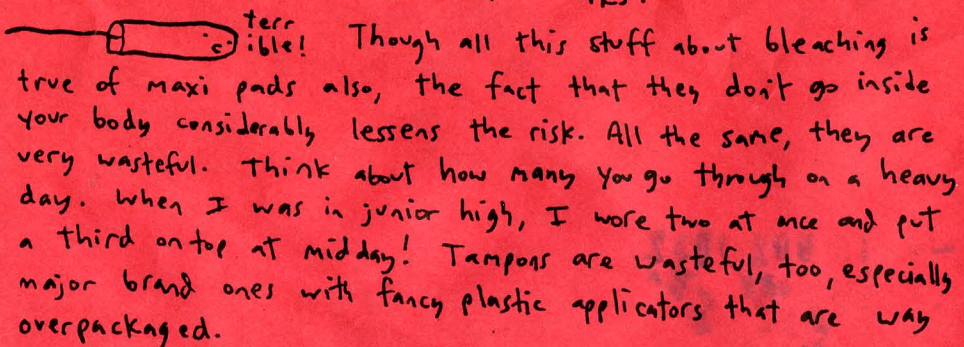 terr
ible! Though all this stuff about bleaching is
true of maxi pads also, the fact that they don't go inside
your body considerably lessens the risk. All the same, they are
very wasteful. Think about how many you go through on a heavy
day. When I was in junior high, I wore two at once and put
a third on top at midday! Tampons are wasteful, too, especially
major brand ones with fancy plastic applicators that are way
overpackaged.